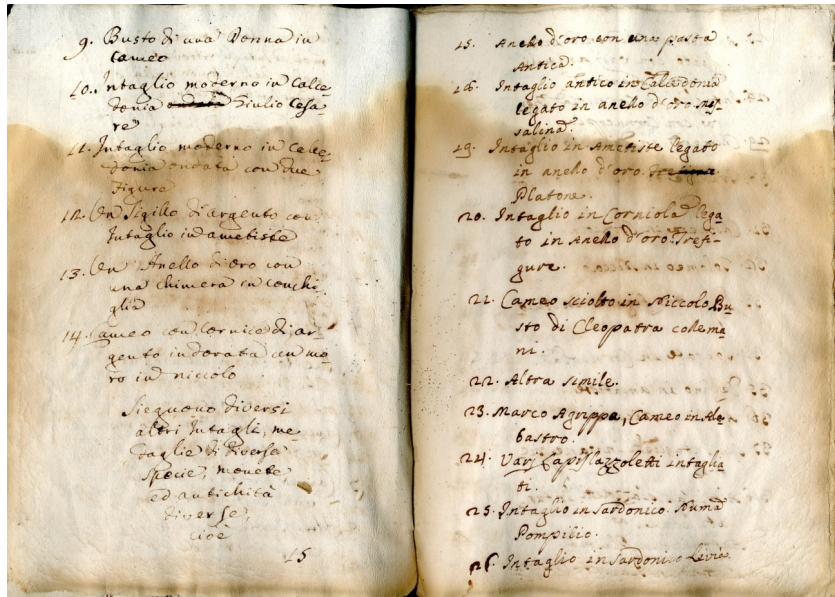 9. Busto di una Donna in
Cameo
10. Intaglio moderno in Calce
donia ondata Giulio Cesa
re
11. Intaglio moderno in Calce
donia ondata con due
Figure
12. Un Sigillo di argento con
Intaglio in ametiste
13. Un Anello di oro con
una chimera in conchi
glia
14. Cameo con Cornice di ar
gento indorata un mo
ro in niccolo
Sieguono diversi
altri Intagli, me
daglie di diverse
specie, monete,
ed antichità
diverse,
cioè
15
15. Anello d'oro con una pasta
Antica.
Intaglio antico in Calcedonia
legato in anello d'oro. Mes
salina.
19. Intaglio in Ametiste legato
in anello d'oro.
Platone.
20. Intaglio in Corniola lega
to in Anello d'oro. Trefi-
gure.
21. Cameo sciolto in Niccolo. Bu
sto di Cleopatra colle ma
ni.
22. Altra simile.
23. Marco Agrippa, Cameo in Ala
bastro.
24. Varj Lapislazzoletti intaglia
ti.
25. Intaglio in Sardonico. Numa
Pompilio.
26. Intaglio in Sardonico Livia.